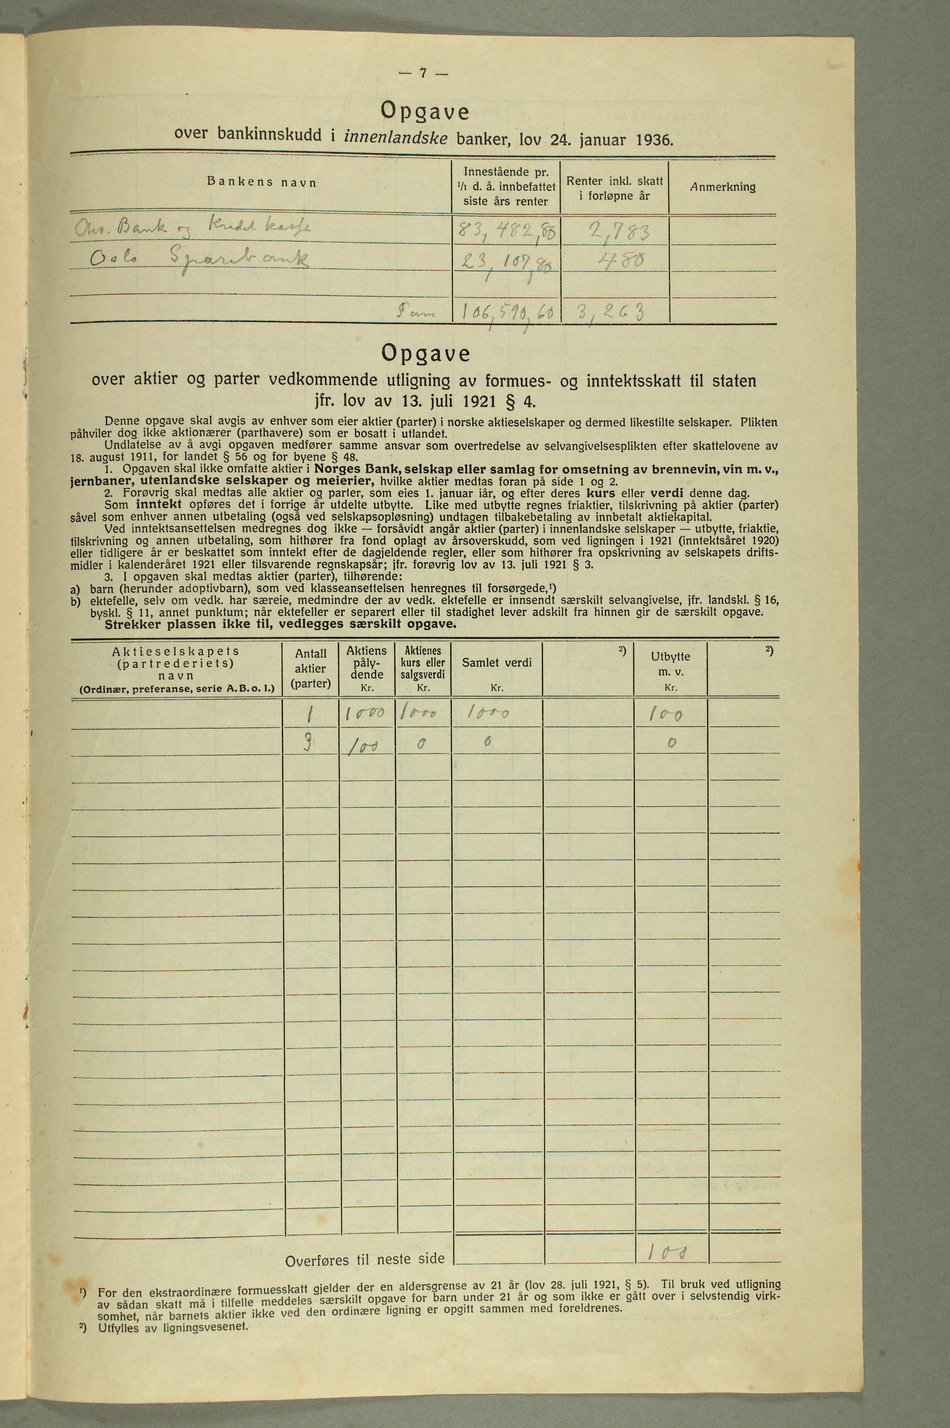 — 7 —
Opgave
over bankinnskudd i innenlandske banker, lov 24. januar 1936.
Bankens navn
Innestående pr. 1/1 d. å. innbefattet siste års renter
Renter inkl. skatt i forløpne år
Anmerkning
Chr. Bank og Kredit kasse 83,482,80 2,783
Oslo Sparebank 23,107,80 480
106,590,60 3,263
Opgave
over aktier og parter vedkommende utligning av formues- og inntektsskatt til staten
jfr. lov av 13. juli 1921 § 4.
Denne opgave skal avgis av enhver som eier aktier (parter) i norske aktieselskaper og dermed likestilte selskaper. Plikten
påhviler dog ikke aktionærer (parthavere) som er bosatt i utlandet.
Undlatelse av å avgi opgaven medfører samme ansvar som overtredelse av selvangivelsesplikten efter skattelovene av
18. august 1911, for landet § 56 og for byene § 48.
1. Opgaven skal ikke omfatte aktier i Norges Bank, selskap eller samlag for omsetning av brennevin, vin m. v.,
jernbaner, utenlandske selskaper og meierier, hvilke aktier medtas foran på side 1 og 2.
2. Forøvrig skal medtas alle aktier og parter, som eies 1. januar iår, og efter deres kurs eller verdi denne dag.
Som inntekt opføres det i forrige år utdelte utbytte. Like med utbytte regnes friaktier, tilskrivning på aktier (parter)
såvel som enhver annen utbetaling (også ved selskapsopløsning) undtagen tilbakebetaling av innbetalt aktiekapital.
Ved inntektsansettelsen medregnes dog ikke — forsåvidt angår aktier (parter) i innenlandske selskaper — utbytte, friaktie,
tilskrivning og annen utbetaling, som hithører fra fond oplagt av årsoverskudd, som ved ligningen i 1921 (inntektsåret 1920)
eller tidligere år er beskattet som inntekt efter de dagjeldende regler, eller som hithører fra opskrivning av selskapets drifts-
midler i kalenderåret 1921 eller tilsvarende regnskapsår; jfr. forøvrig lov av 13. juli 1921 § 3.
3. I opgaven skal medtas aktier (parter), tilhørende:
a) barn (herunder adoptivbarn), som ved klasseansettelsen henregnes til forsørgede,¹)
b) ektefelle, selv om vedk. har særeie, medmindre der av vedk. ektefelle er innsendt særskilt selvangivelse, jfr. landskl. § 16,
byskl. § 11, annet punktum; når ektefeller er separert eller til stadighet lever adskilt fra hinnen gir de særskilt opgave.
Strekker plassen ikke til, vedlegges særskilt opgave.
Aktieselskapets (partrederiets) navn (Ordinær, preferanse, serie A. B. o. l.)
Antall aktier (parter)
Aktiens påly- dende Kr.
Aktienes kurs eller salgsverdi Kr.
Samlet verdi Kr.
²)
Utbytte m. v. Kr.
²)
1 1000 1000 1000 100
3 100 0 0 0
Overføres til neste side 100
¹) For den ekstraordinære formuesskatt gjelder der en aldersgrense av 21 år (lov 28. juli 1921, § 5). Til bruk ved utligning
av sådan skatt må i tilfelle meddeles særskilt opgave for barn under 21 år og som ikke er gått over i selvstendig virk-
somhet, når barnets aktier ikke ved den ordinære ligning er opgitt sammen med foreldrenes.
²) Utfylles av ligningsvesenet.